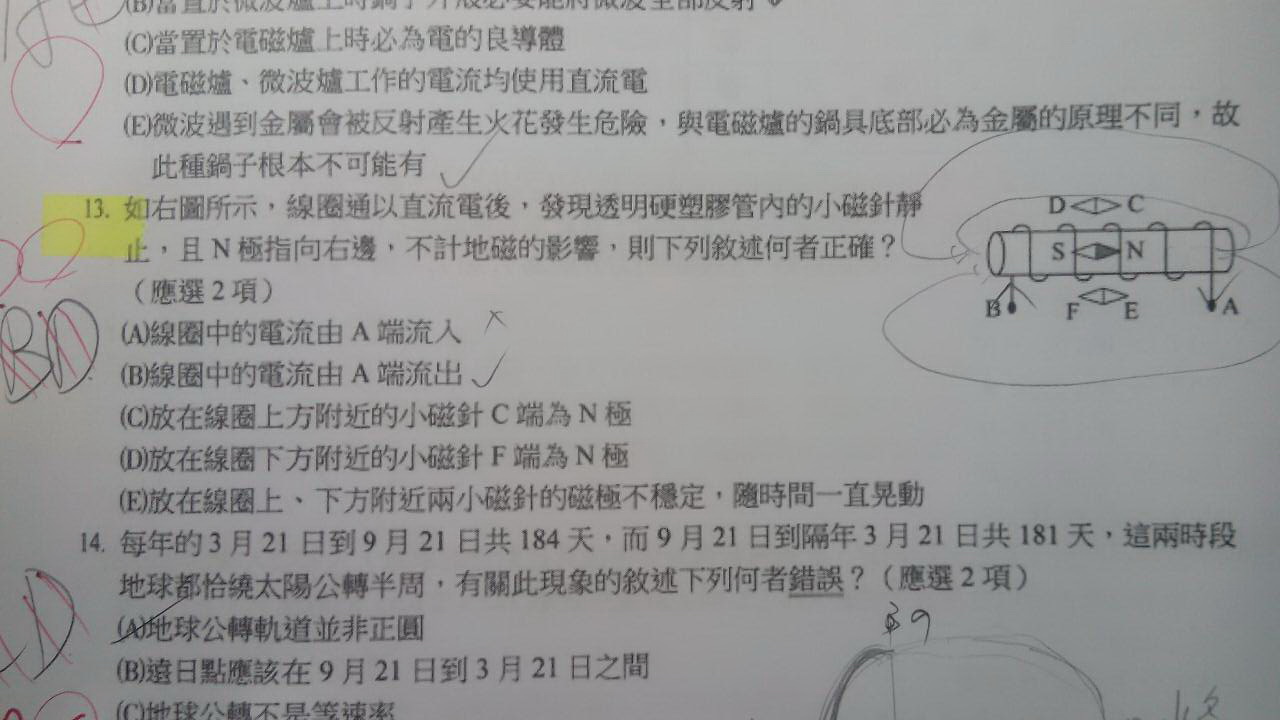 (B)當置於微波爐上時鍋子外殼必要能將微波全部反射
(C)當置於電磁爐上時必為電的良導體
(D)電磁爐、微波爐工作的電流均使用直流電
(E)微波遇到金屬會被反射產生火花發生危險，與電磁爐的鍋具底部必為金屬的原理不同，故
此種鍋子根本不可能有
13. 如右圖所示，線圈通以直流電後，發現透明硬塑膠管內的小磁針靜
止，且 N 極指向右邊，不計地磁的影響，則下列敘述何者正確？
（應選 2 項）
(A)線圈中的電流由 A 端流入
(B)線圈中的電流由 A 端流出
(C)放在線圈上方附近的小磁針 C 端為 N 極
(D)放在線圈下方附近的小磁針 F 端為 N 極
(E)放在線圈上、下方附近兩小磁針的磁極不穩定，隨時間一直晃動
D C
S N
B F E A
BD
14. 每年的 3 月 21 日到 9 月 21 日共 184 天，而 9 月 21 日到隔年 3 月 21 日共 181 天，這兩時段
地球都恰繞太陽公轉半周，有關此現象的敘述下列何者錯誤？（應選 2 項）
(A)地球公轉軌道並非正圓
(B)遠日點應該在 9 月 21 日到 3 月 21 日之間
(C)地球公轉不是等速率
D